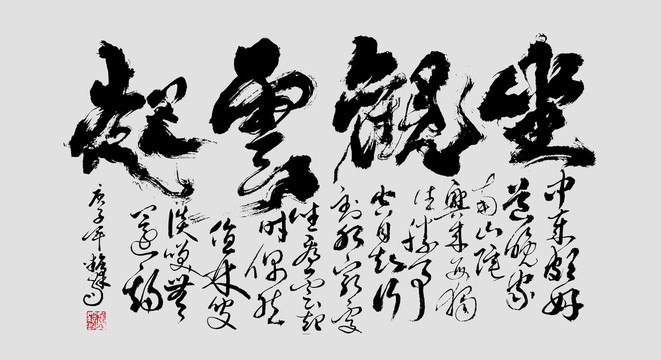 坐觀雲起
中歲頗好
道晚家
南山陲
興來每獨
往勝事
空自知行
到水窮處
坐看雲起
時偶然
值林叟
談笑無
還期
庚子年